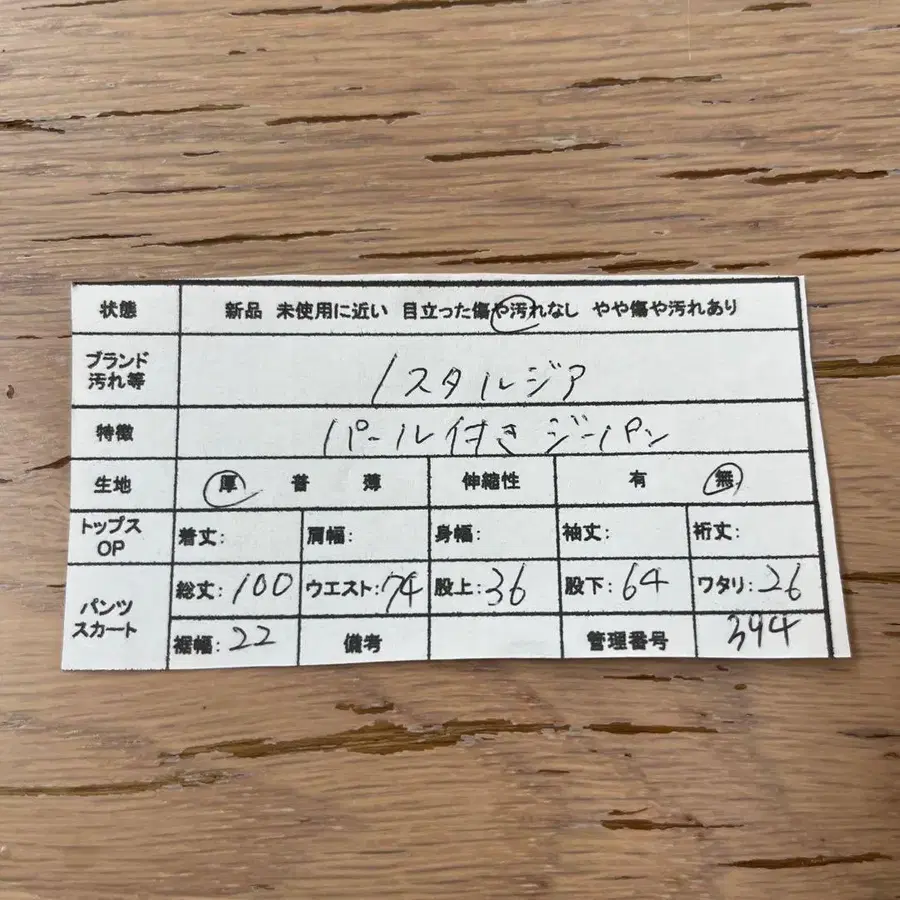 状態 新品 未使用に近い 目立った傷や汚れなし やや傷や汚れあり
ブランド
汚れ等
ノスタルジア
特徴 パール付きジーパン
生地 厚 普 薄 伸縮性 有 無
トップス
OP
着丈: 肩幅: 身幅: 袖丈: 裄丈:
パンツ
スカート
総丈:100 ウエスト:74 股上:36 股下:64 ワタリ:26
裾幅:22 備考 管理番号 394